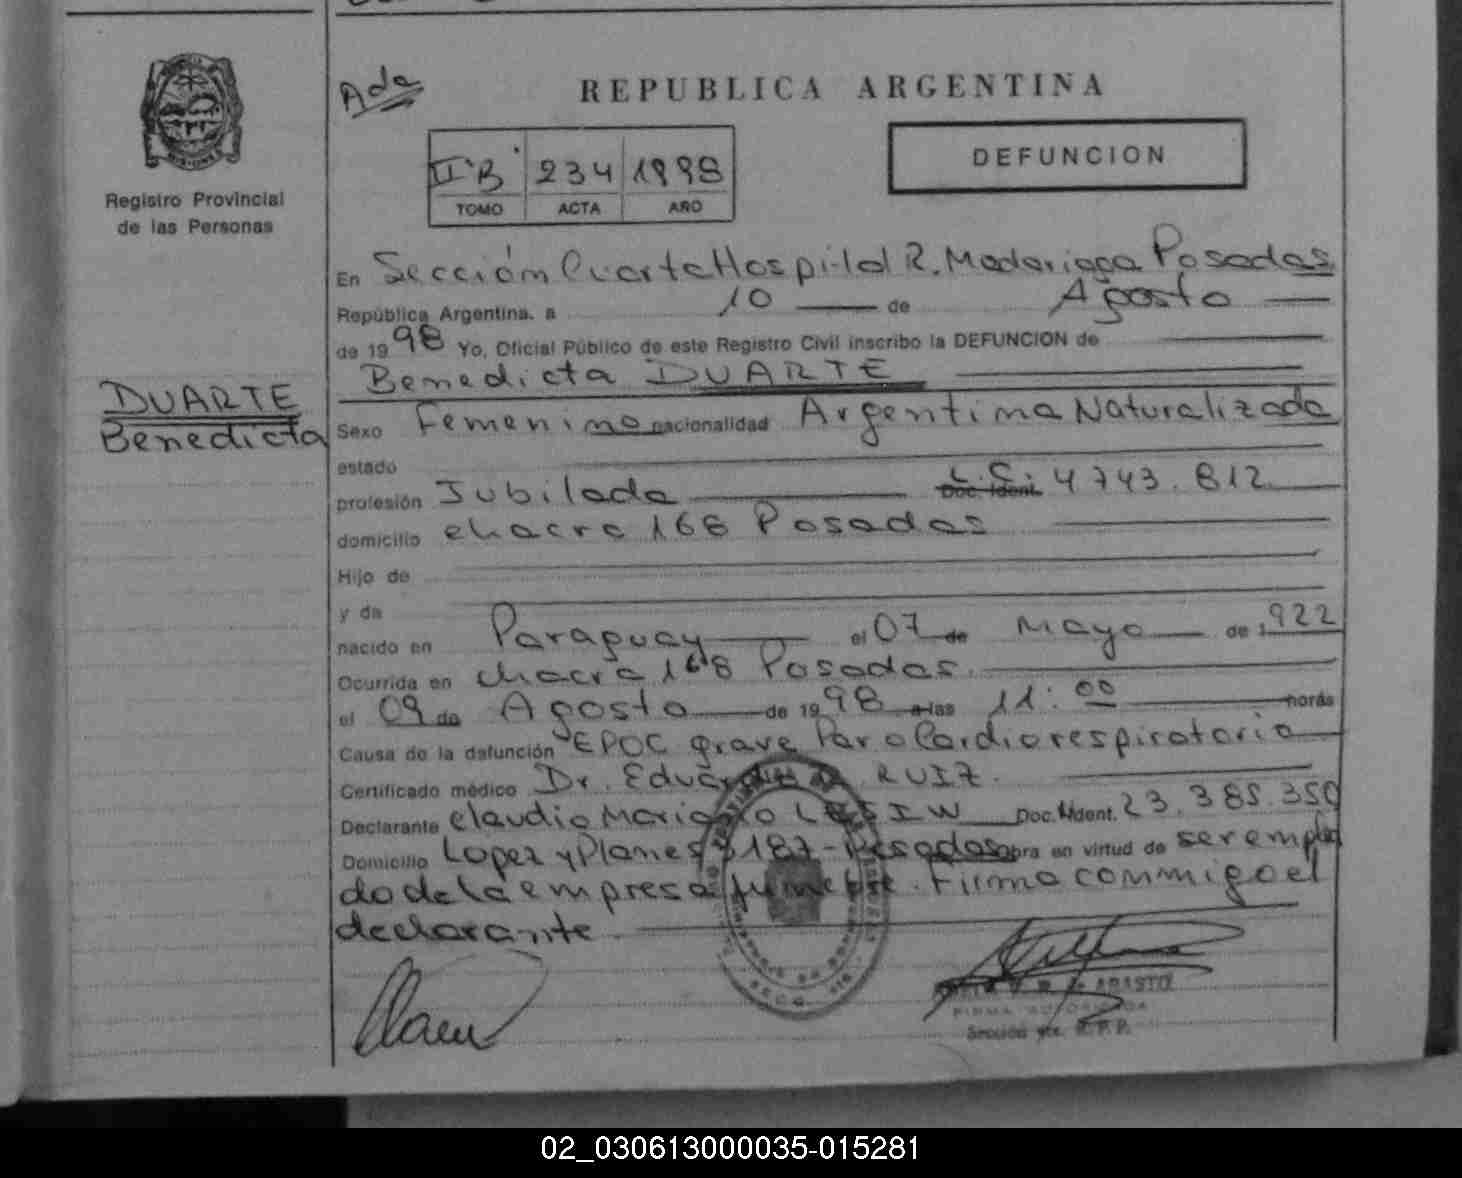 Ada
REPUBLICA ARGENTINA
II"B" 234 1998
TOMO ACTA AÑO
DEFUNCION
Registro Provincial
de las Personas
DUARTE
Benedicta
En Sección Cuarta Hospital R. Madariaga Posadas
República Argentina, a 10 de Agosto
de 1998 Yo, Oficial Público de este Registro Civil inscribo la DEFUNCION de
Benedicta DUARTE
Sexo Femenino nacionalidad Argentina Naturalizada
estado
profesión Jubilada L.C. Doc. Ident. 4743.812
domicilio chacra 168 Posadas
Hijo de
y de
nacido en Paraguay el 07 de Mayo de 1922
Ocurrida en chacra 168 Posadas.
el 09 de Agosto de 1998 a las 11:00 horas
Causa de la defunción EPOC grave Paro Cardiorespiratorio
Certificado médico Dr. Eduardo RUIZ.
Declarante Claudio Mariano Doc. Ident. 23.385.350
Domicilio Lopez y Planes 187 - Posadas obra en virtud de ser emplea
do de la empresa funebre. Firma conmigo el
declarante.
FIRMA AUTORIZADA
Sección 4ta. R.P.P.
02_030613000035-015281